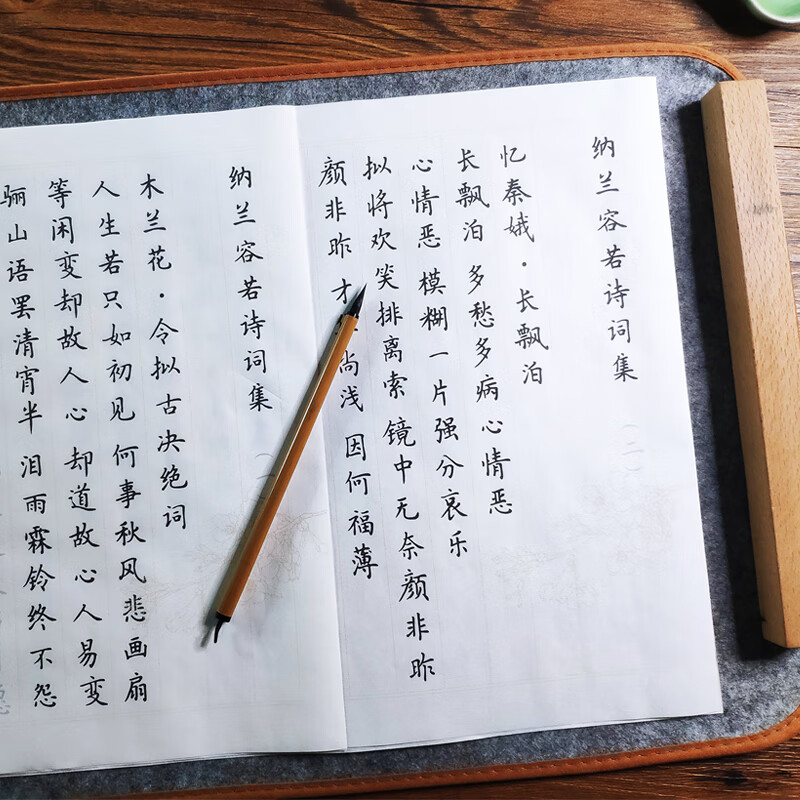 纳兰容若诗词集 (二)
忆秦娥·长飘泊
长飘泊 多愁多病心情恶
心情恶 模糊一片强分哀乐
拟将欢笑排离索 镜中无奈颜非昨
颜非昨 才 尚浅 因何福薄
纳兰容若诗词集
木兰花·令拟古决绝词
人生若只如初见 何事秋风悲画扇
等闲变却故人心 却道故心人易变
骊山语罢清宵半 泪雨霖铃终不怨